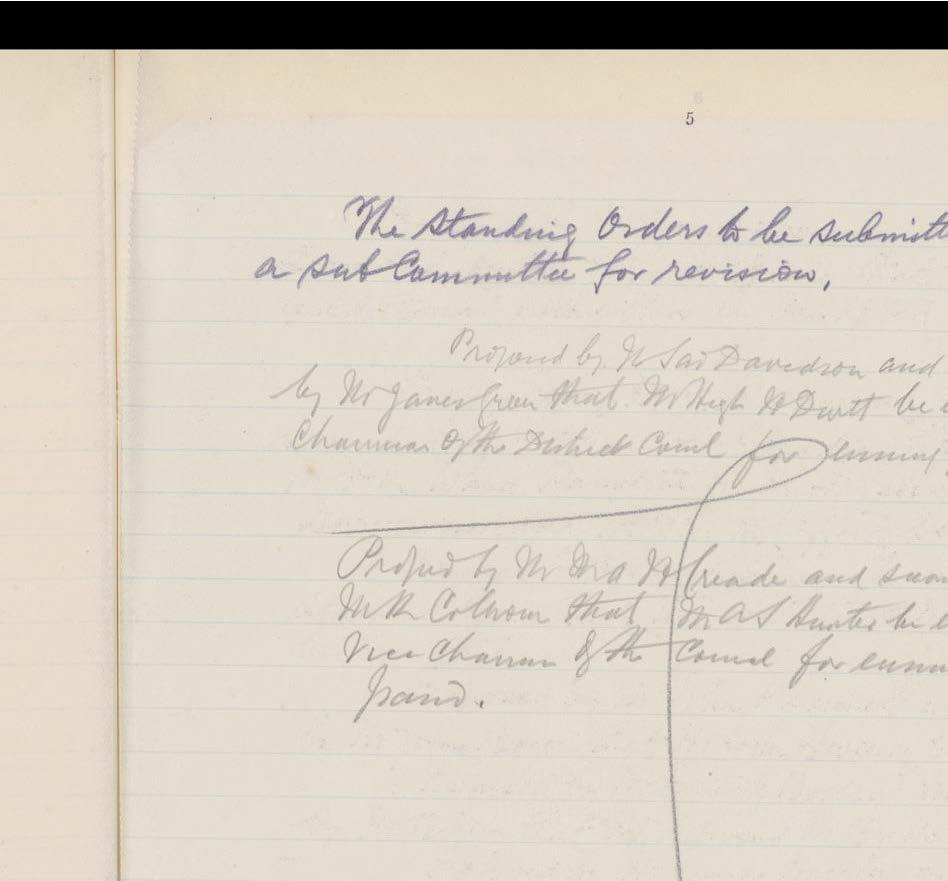 5
The Standing Orders to be submitt
a sub Committee for revision,
Proposed by Davidson and
by Mr James Green that Mr Hugh be
Chairman of the District Council for ensuing
Proposed by Mr and
Mr Colhoun that Mr A S Hunter be
Vice Chairman of the Council for